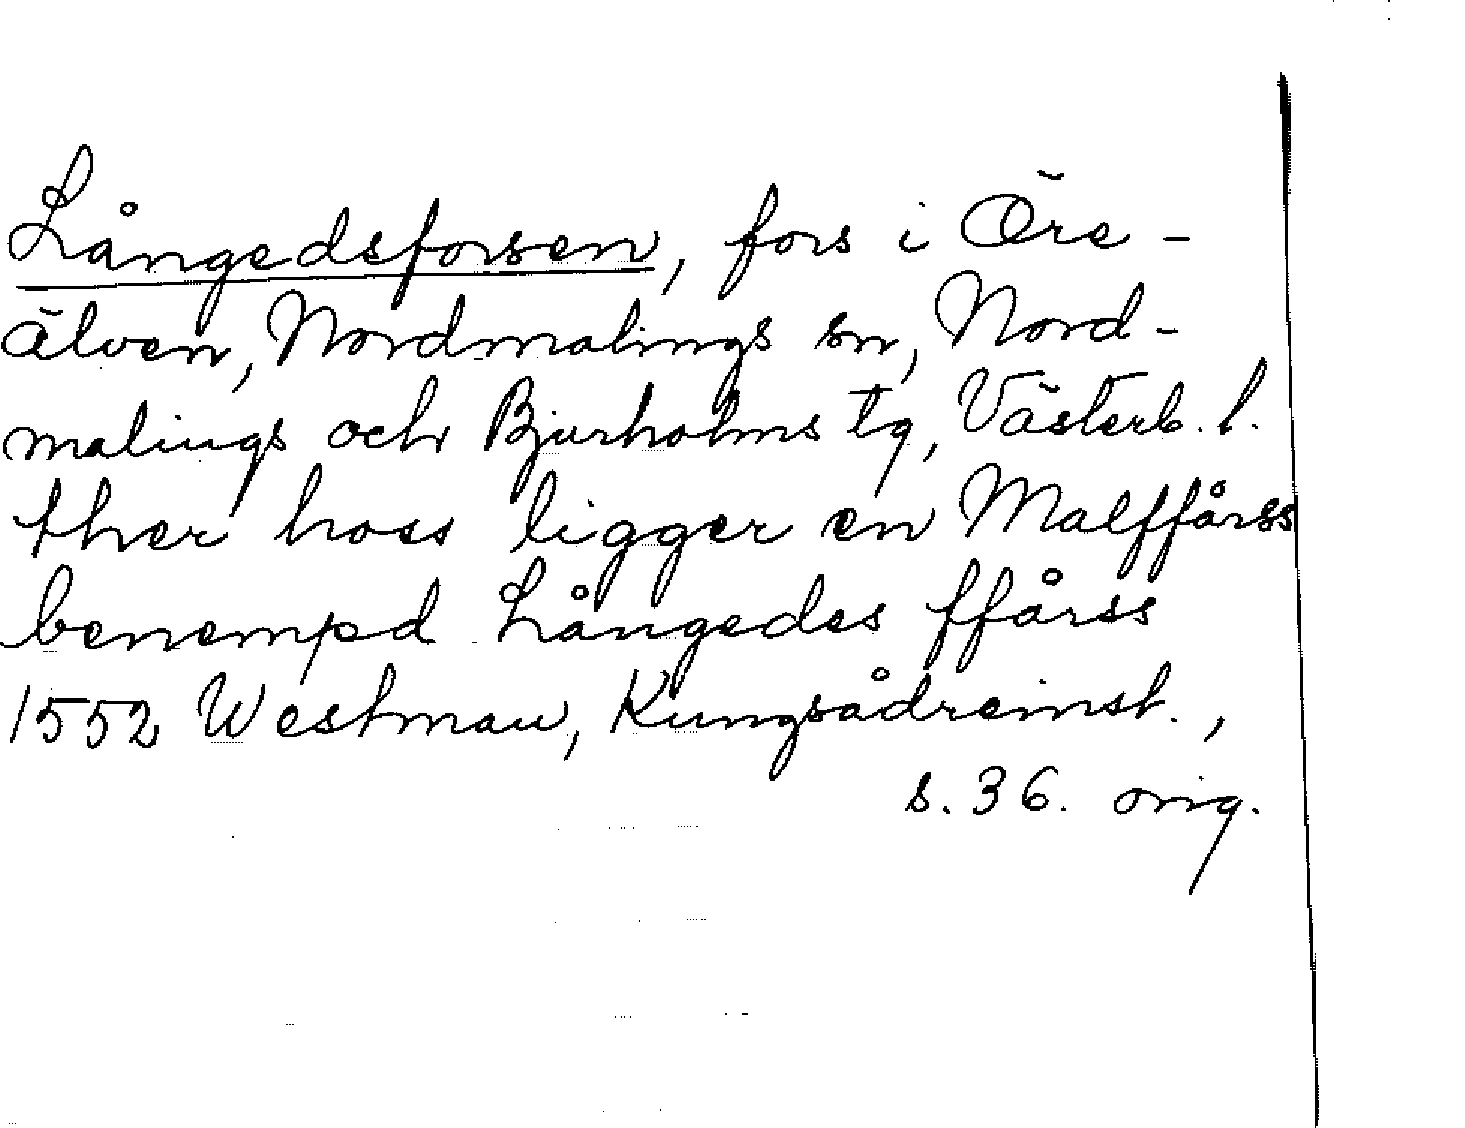 Långedsforsen, fors i Öre-
älven, Nordmalings sn, Nord-
malings och Bjurholms tg, Västerb. l.
ther hoss ligger en Malffårss
benempd Långedes ffårss
1552 Westman, Kungsådreinst.,
s. 36. orig.